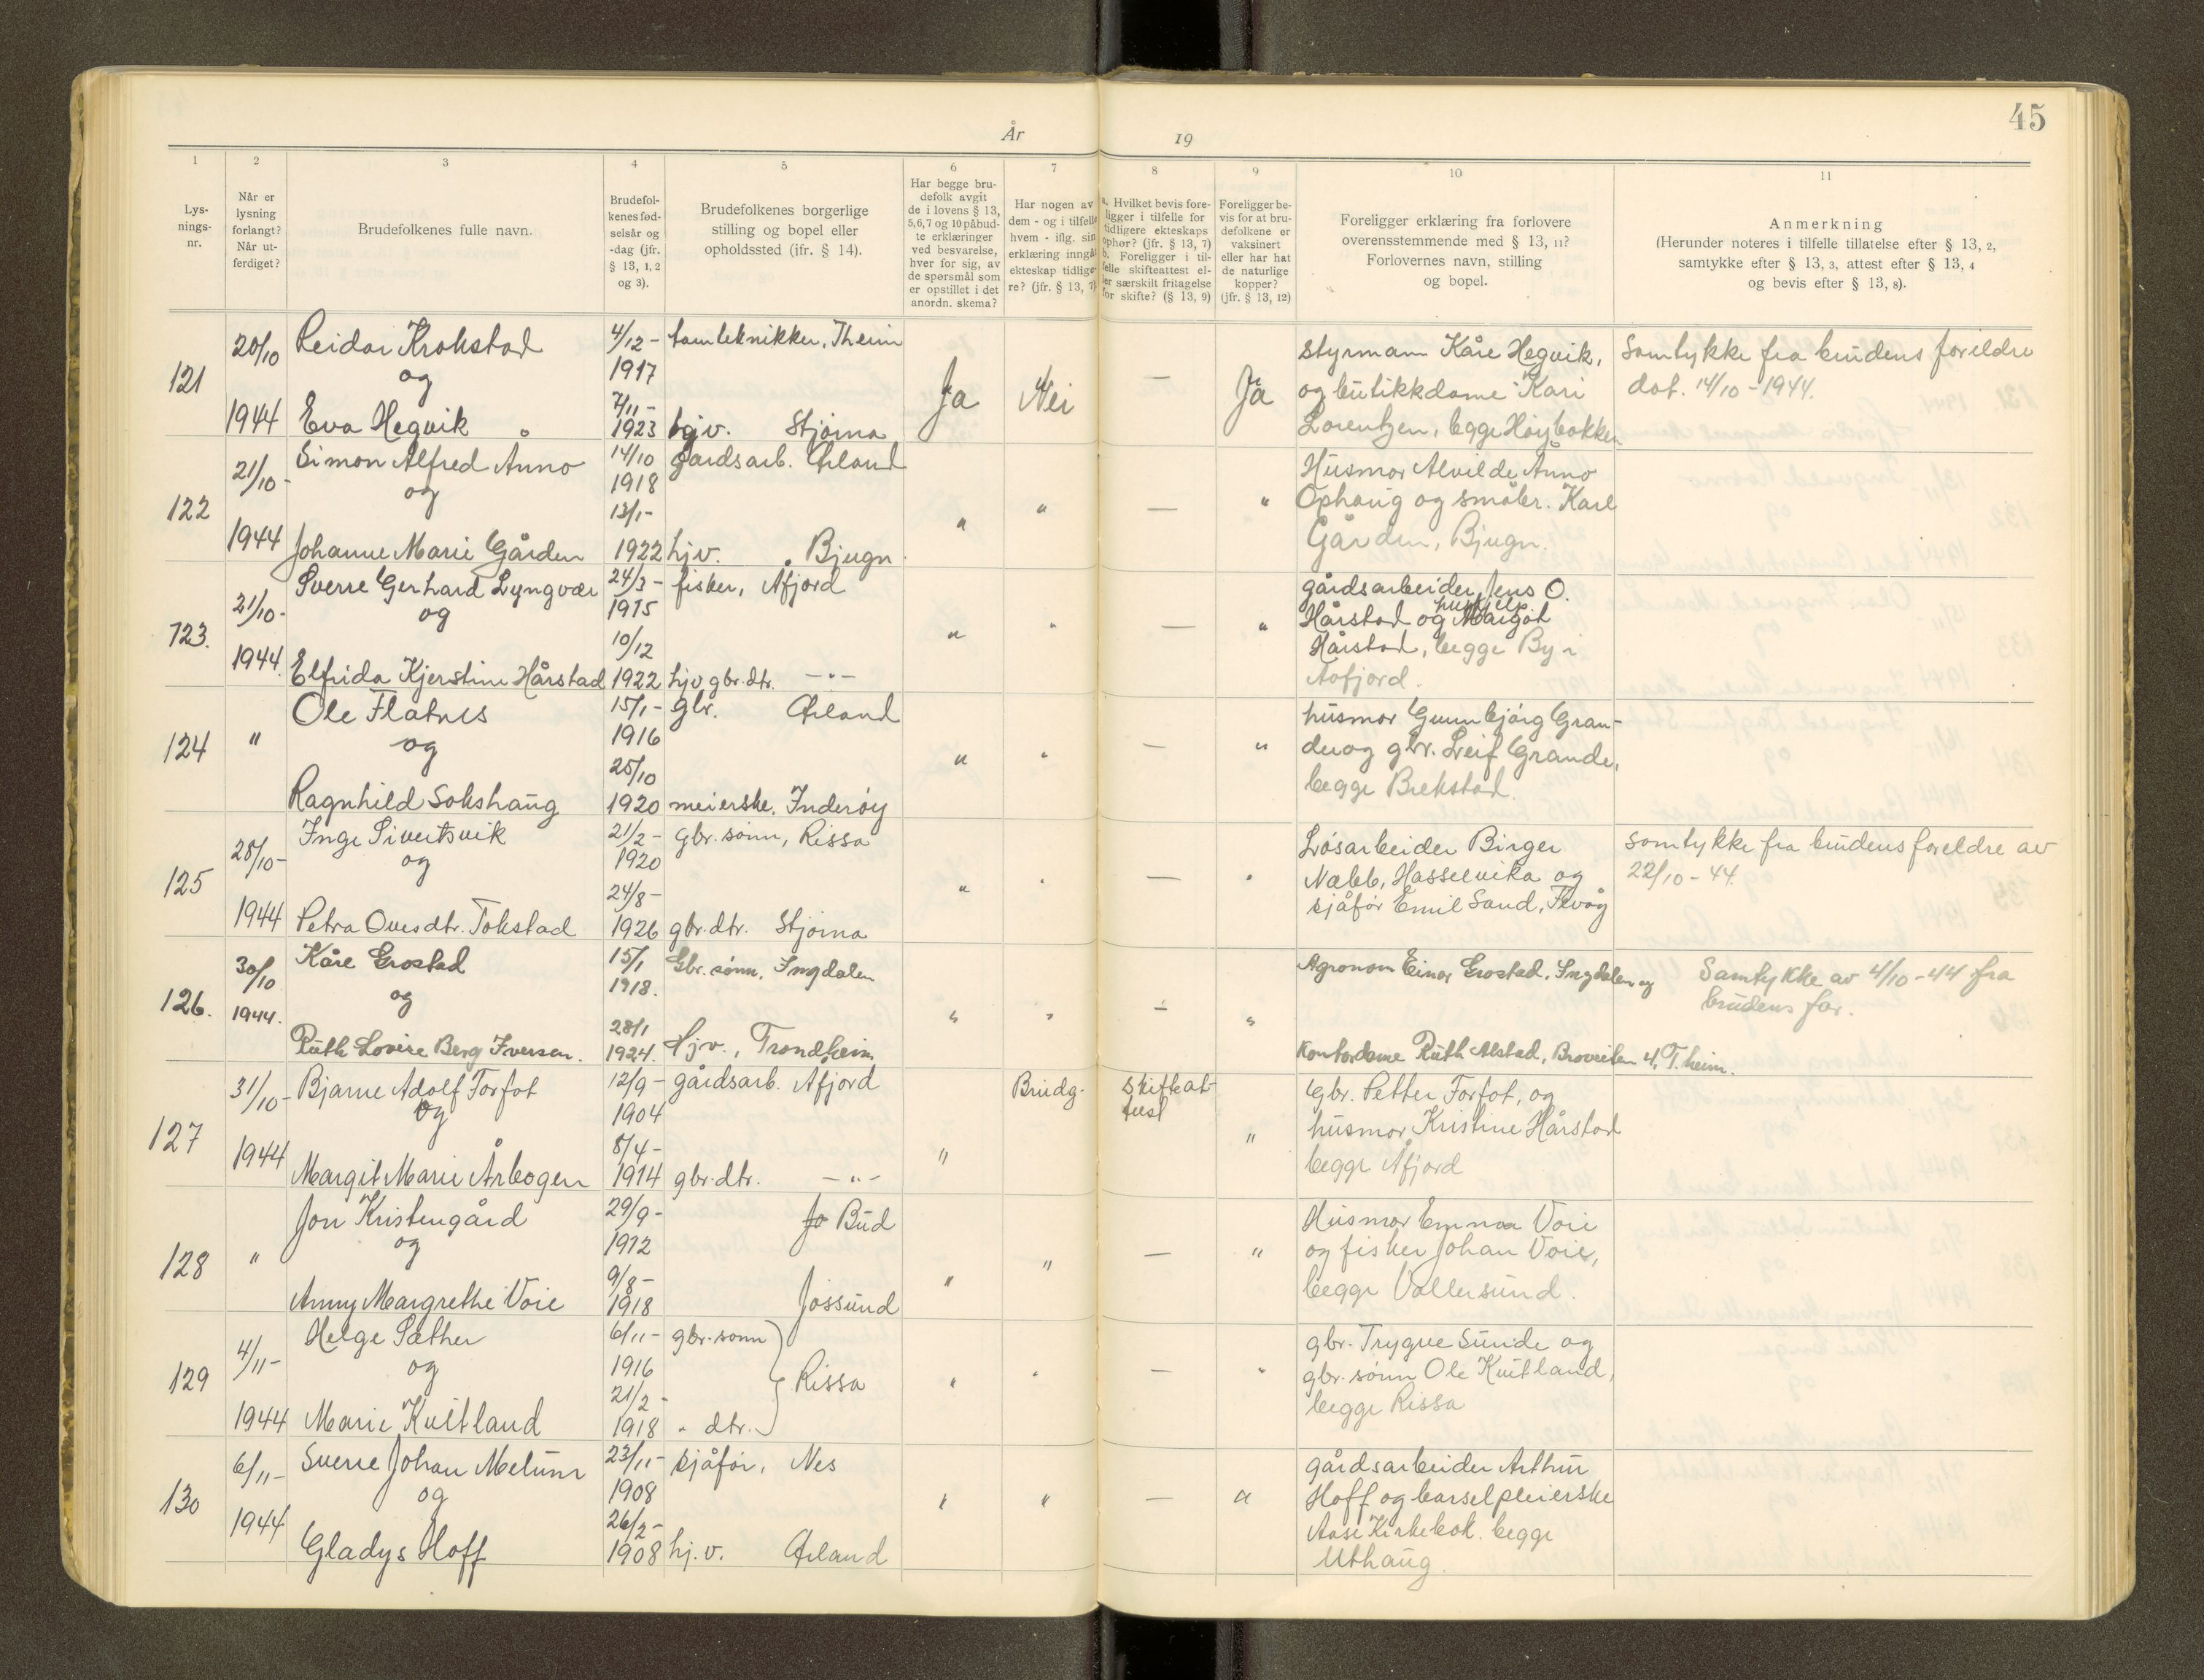 45
År 19
1 2 3 4 5 6 7 8 9 10 11
Lys-
nings-
nr.
Når er
lysning
forlangt?
Når ut-
ferdiget?
Brudefolkenes fulle navn.
Brudefol-
kenes fød-
selsår og
-dag (jfr.
§ 13, 1, 2
og 3).
Brudefolkenes borgerlige
stilling og bopel eller
opholdssted (ifr. § 14).
Har begge bru-
defolk avgit
de i lovens § 13,
5,6,7 og 10 påbud-
te erklæringer
ved besvarelse,
hver for sig, av
de spørsmål som
er opstillet i det
anordn. skema?
Har nogen av
dem - og i tilfelle
hvem - iflg. sin
erklæring inngåt
ekteskap tidlige-
re? (jfr. § 13, 7)
a. Hvilket bevis fore-
ligger i tilfelle for
tidligere ekteskaps
ophør? (jfr. § 13, 7)
b. Foreligger i til-
felle skifteattest el-
ler særskilt fritagelse
for skifte? (§ 13, 9)
Foreligger be-
vis for at bru-
defolkene er
vaksinert
eller har hat
de naturlige
kopper?
(jfr. § 13, 12)
Foreligger erklæring fra forlovere
overensstemmende med § 13, 11?
Forlovernes navn, stilling
og bopel.
Anmerkning
(Herunder noteres i tilfelle tillatelse efter § 13, 2,
samtykke efter § 13, 3, attest efter § 13, 4
og bevis efter § 13, 8).
121
20/10
1944
Reidar Krokstad
og
Eva Hegvik
4/12 -
1917
7/11 -
1923
tamteknikker, Theim
hjv. Stjørna
Ja
Nei
—
Ja
Styrmann Kåre Hegvik,
og butikkdame Kari
Lorentzen, begge Høybakken
Samtykke fra brudens foreldre
dat. 14/10 - 1944.
122
21/10 -
1944
Simon Alfred Anno
og
Johanne Marie Gården
14/10
1918
13/1 -
1922
gårdsarb. Ørland
hjv. Bjugn
" " — "
Husmor Alvilde Anno
Ophaug og småbr. Karl
Gården, Bjugn.
123.
21/10 -
1944
Sverre Gerhard Lyngvær
og
Elfrida Kjerstine Hårstad
24/3 -
1915
10/12
1922
fisker, Åfjord
hjv gbr. dtr. — " —
" " — "
gårdsarbeider Jens O.
hushjelp
Hårstad og Margot
Hårstad, begge By i
Aafjord.
124
"
Ole Flatnes
og
Ragnhild Sakshaug
15/1 -
1916
25/10
1920
gbr. Ørland
meierske, Inderøy
" " — "
husmor Gunnbjørg Gran-
de og gbr. Leif Grande,
begge Brekstad.
125
28/10 -
1944
Inge Sivertsvik
og
Petra Ovesdtr. Tokstad
21/2 -
1920
24/8 -
1926
gbr. sønn, Rissa
gbr. dtr. Stjørna
" " — "
Løsarbeider Birger
Nabb, Hasselvika og
sjåfør Emil Sand, Fevåg
Samtykke fra brudens foreldre av
22/10 - 44.
126.
30/10
1944.
Kåre Grostad
og
Ruth Lovise Berg Iversen.
15/1
1918.
28/1
1924.
Gbr. sønn, Ingdalen
Hjv., Trondheim
" " — "
Agronom Einar Grostad, Ingdalen og
Kontordame Ruth Alstad, Broveiten 4, T.heim.
Samtykke av 4/10 - 44 fra
brudens far.
127
31/10 -
1944
Bjarne Adolf Forfot
og
Margit Marie Årbogen
12/9 -
1904
8/4 -
1914
gårdsarb. Åfjord
gbr. dtr. — " —
"
Brudg.
Skifteat-
test
"
Gbr. Petter Forfot, og
husmor Kristine Hårstad
begge Åfjord
128
"
Jon Kristengård
og
Anny Margrethe Voie
29/9 -
1912
9/8 -
1918
Jo Bud
Jøssund
" " — "
Husmor Emma Voie
og fisker Johan Voie,
begge Vallersund.
129
4/11 -
1944
Helge Sæther
og
Marie Kvitland
6/11 -
1916
21/2 -
1918
gbr. sønn
" dtr.
Rissa
" " — "
gbr. Trygve Sunde og
gbr. sønn Ole Kvitland,
begge Rissa
130
6/11 -
1944
Sverre Johan Melum
og
Gladys Hoff
23/11 -
1908
26/2 -
1908
sjåfør, Nes
hj. v. Ørland
" " — "
gårdsarbeider Arthur
Hoff og barselpleierske
Aase Kirkebak. begge
Uthaug.